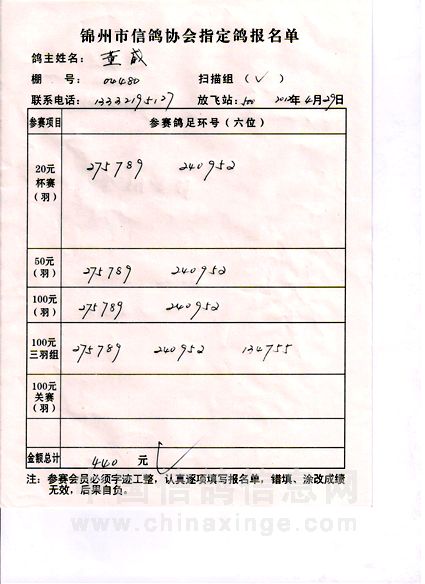 锦州市信鸽协会指定鸽报名单
鸽主姓名： 董
棚 号： 04480 扫描组（✓）
联系电话：13332195127 放飞站：500 2012年4月29日
参赛项目 参赛鸽足环号（六位）
20元
杯赛
（羽）
275789 240952
50元
（羽）
275789 240952
100元
（羽）
275789 240952
100元
三羽组
275789 240952 134755
100元
关赛
（羽）
金额总计 440 元 ✓
注：参赛会员必须字迹工整，认真逐项填写报名单，错填、涂改成绩
无效，后果自负。
中国信鸽信息网
www.chinaxinge.com